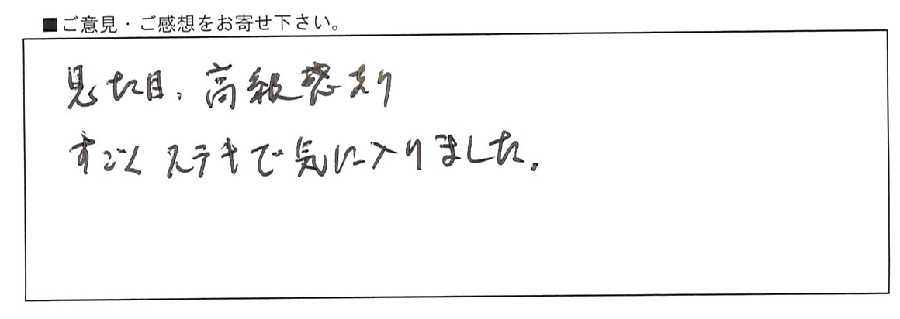 ■ご意見・ご感想をお寄せ下さい。
見た目、高級感あり
すごくステキで気に入りました。